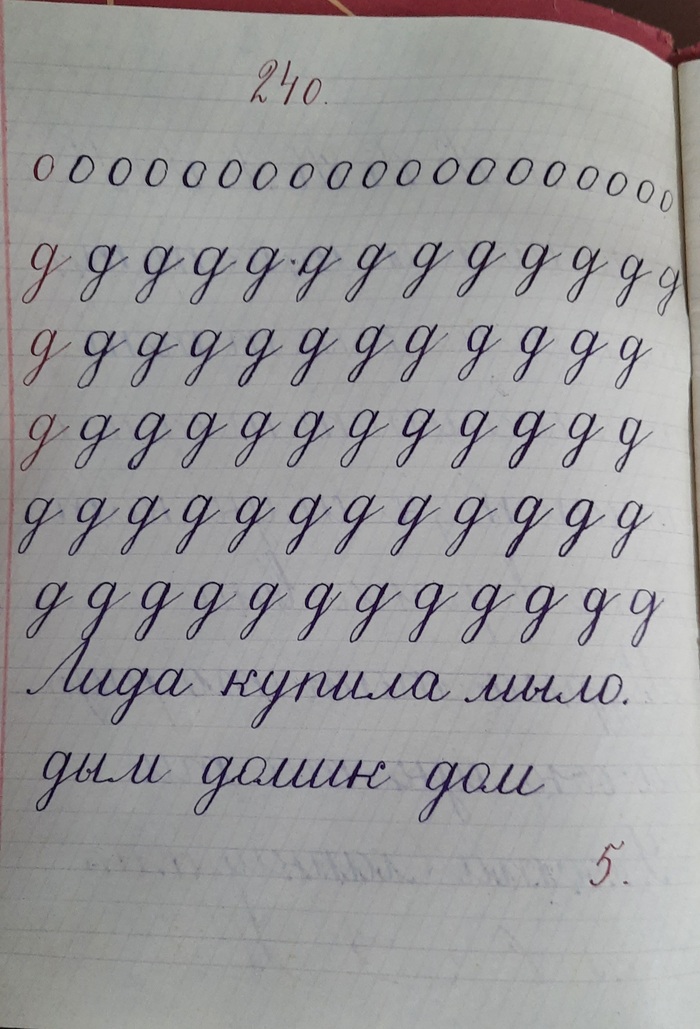 240.
о о о о о о о о о о о о о о о о о о о о
д д д д д д д д д д д д д
д д д д д д д д д д д д
д д д д д д д д д д д д
д д д д д д д д д д д д
д д д д д д д д д д д д
Лида купила мыло.
дым домик дом
5.